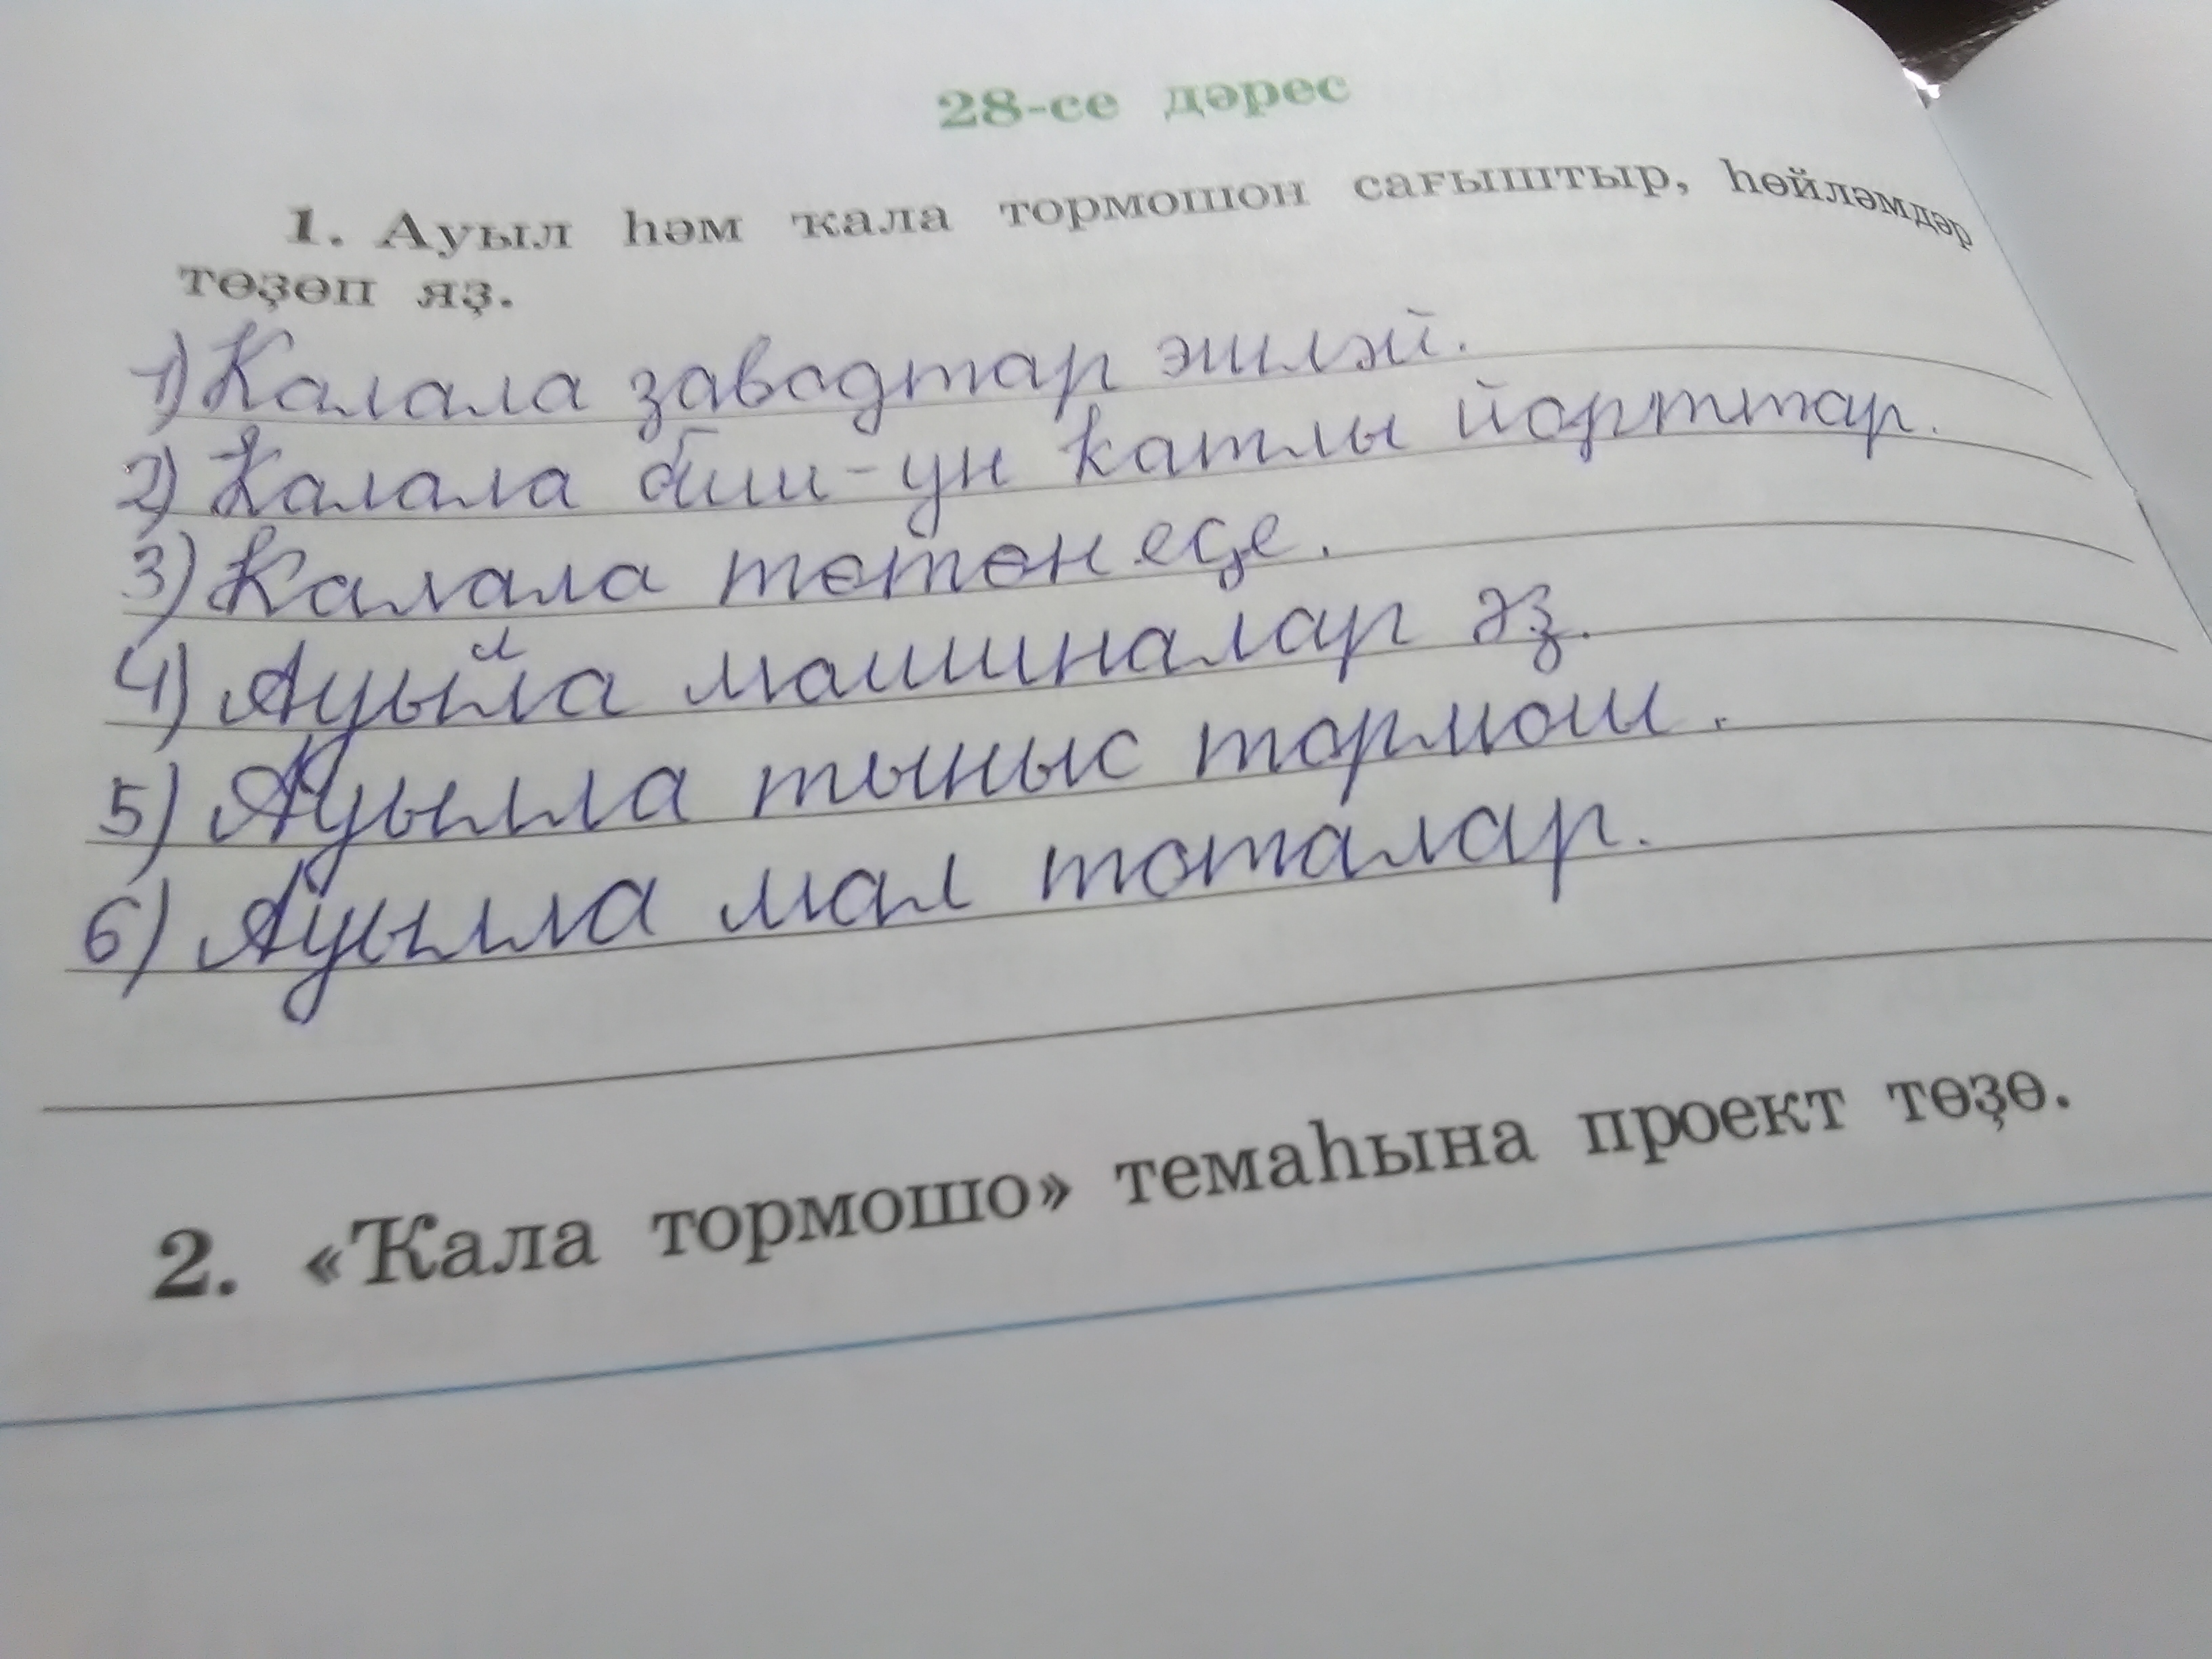 28-се дәрес
1. Ауыл һәм ҡала тормошон сағыштыр, һөйләмдәр
төҙөп яҙ.
1) Калала заводтар эшләй.
2) Калала биш-ун катлы йорттар.
3) Калала төтөн еҫе.
4) Ауылла машиналар әҙ.
5) Ауылла тыныс тормош.
6) Ауылла мал тоталар.
2. «Ҡала тормошо» темаһына проект төҙө.